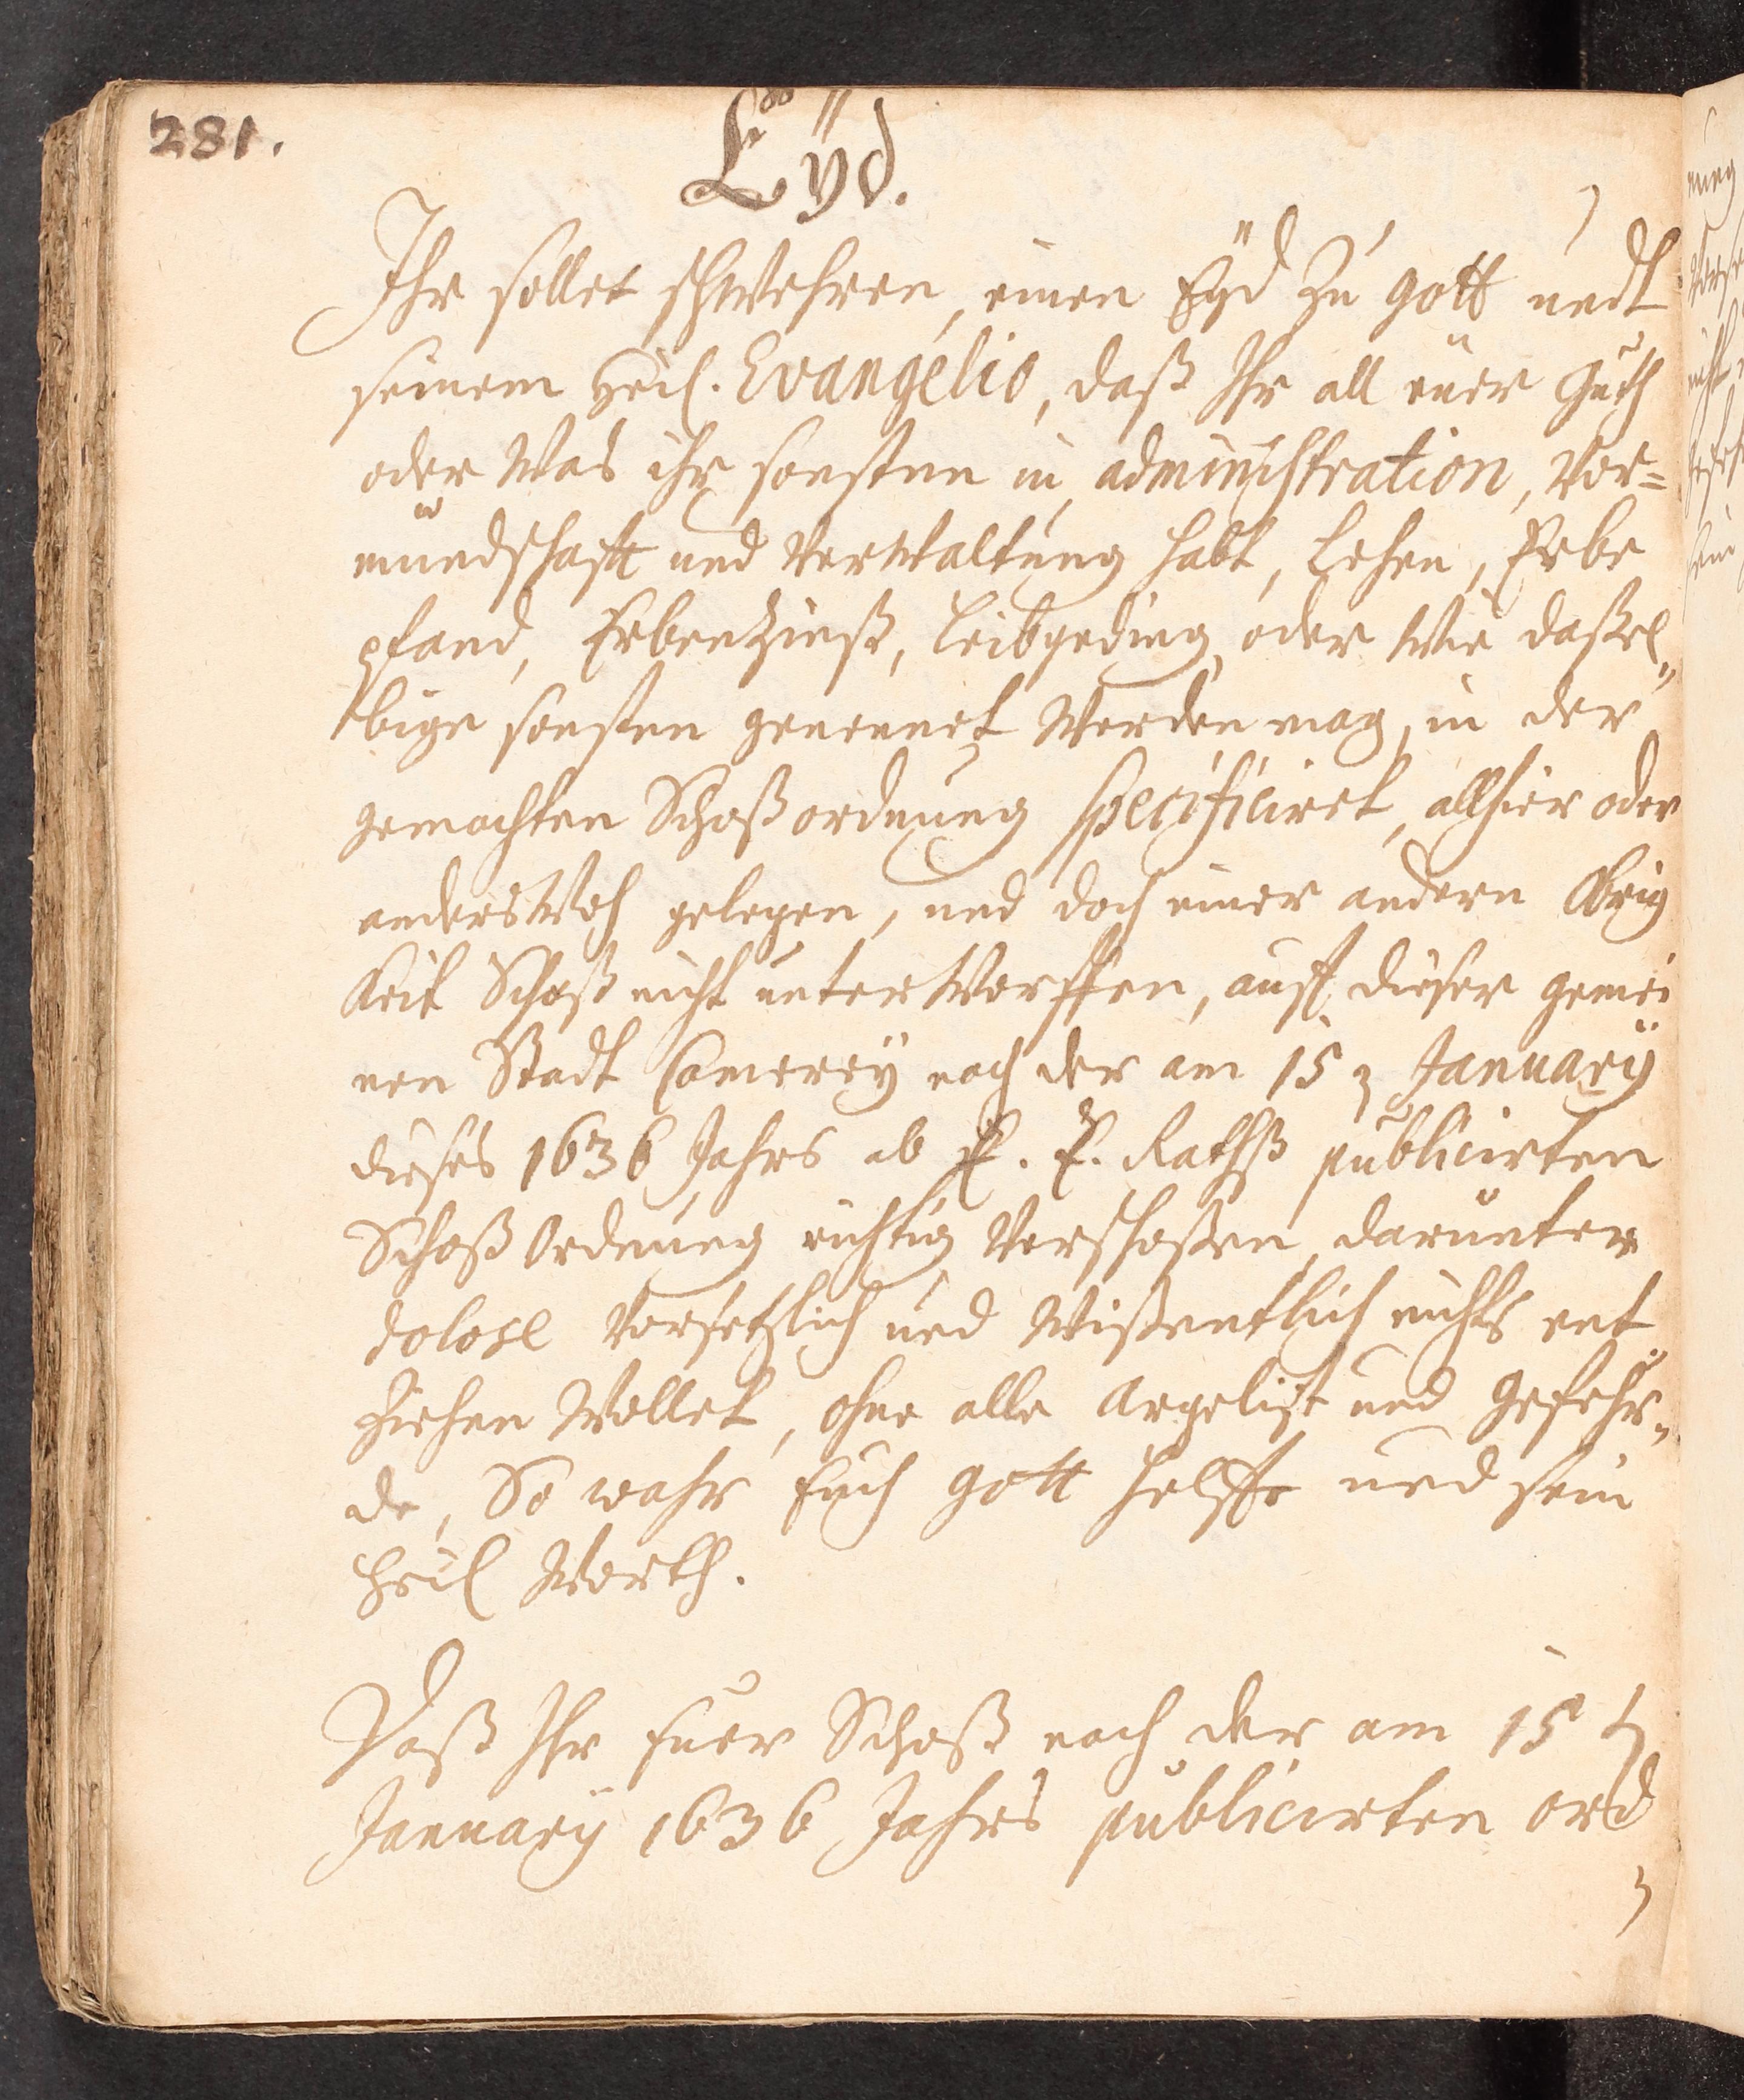 281.
Eÿd.
Ihr sollet schwehren, einen Eÿd zu gott undt
seinem heil. Evangelio, daß Ihr all euer Guth
oder was ihr sonsten in administration, Vor=
mundschafft und Verwaltung habt, Lehen, Erbe
pfand, Erbenzinß, Leibgeding oder wie daßel„
bige sonsten genennet werden mag, in der
gemachten Schoßordnung specificiret, allhier oder
anderswoh gelegen, und doch einer andern Obrig
keit Schoß nicht unterworffen, auff dieser gemei
nen Stadt Camereÿ nach der am 15 Januarÿ
dieses 1636 Jahrs ab E. E. Rathß publicirten
Schoß Ordnung richtig Verschoßen, darunter
dolose Vorsetzlich und wißentlich nichts ent
ziehen wollet, ohne alle argelist und Gefehr„
de, So wahr Euch gott helffe und sein
heil Worth.
Daß Ihr Euer Schoß nach der am 15 t
Januarÿ 1636 Jahrs publicirten ord